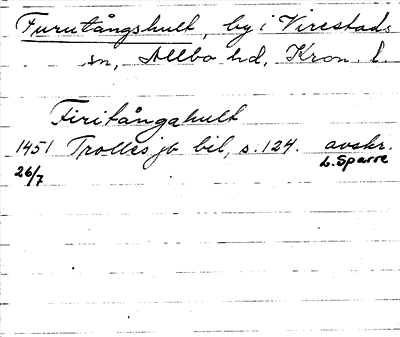 Furutångshult, by i Virestads
sn, Allbo hd, Kron. l.
Firitångahult
1451 Trolles jb bil, s. 124. avskr.
26/7 L. Sparre